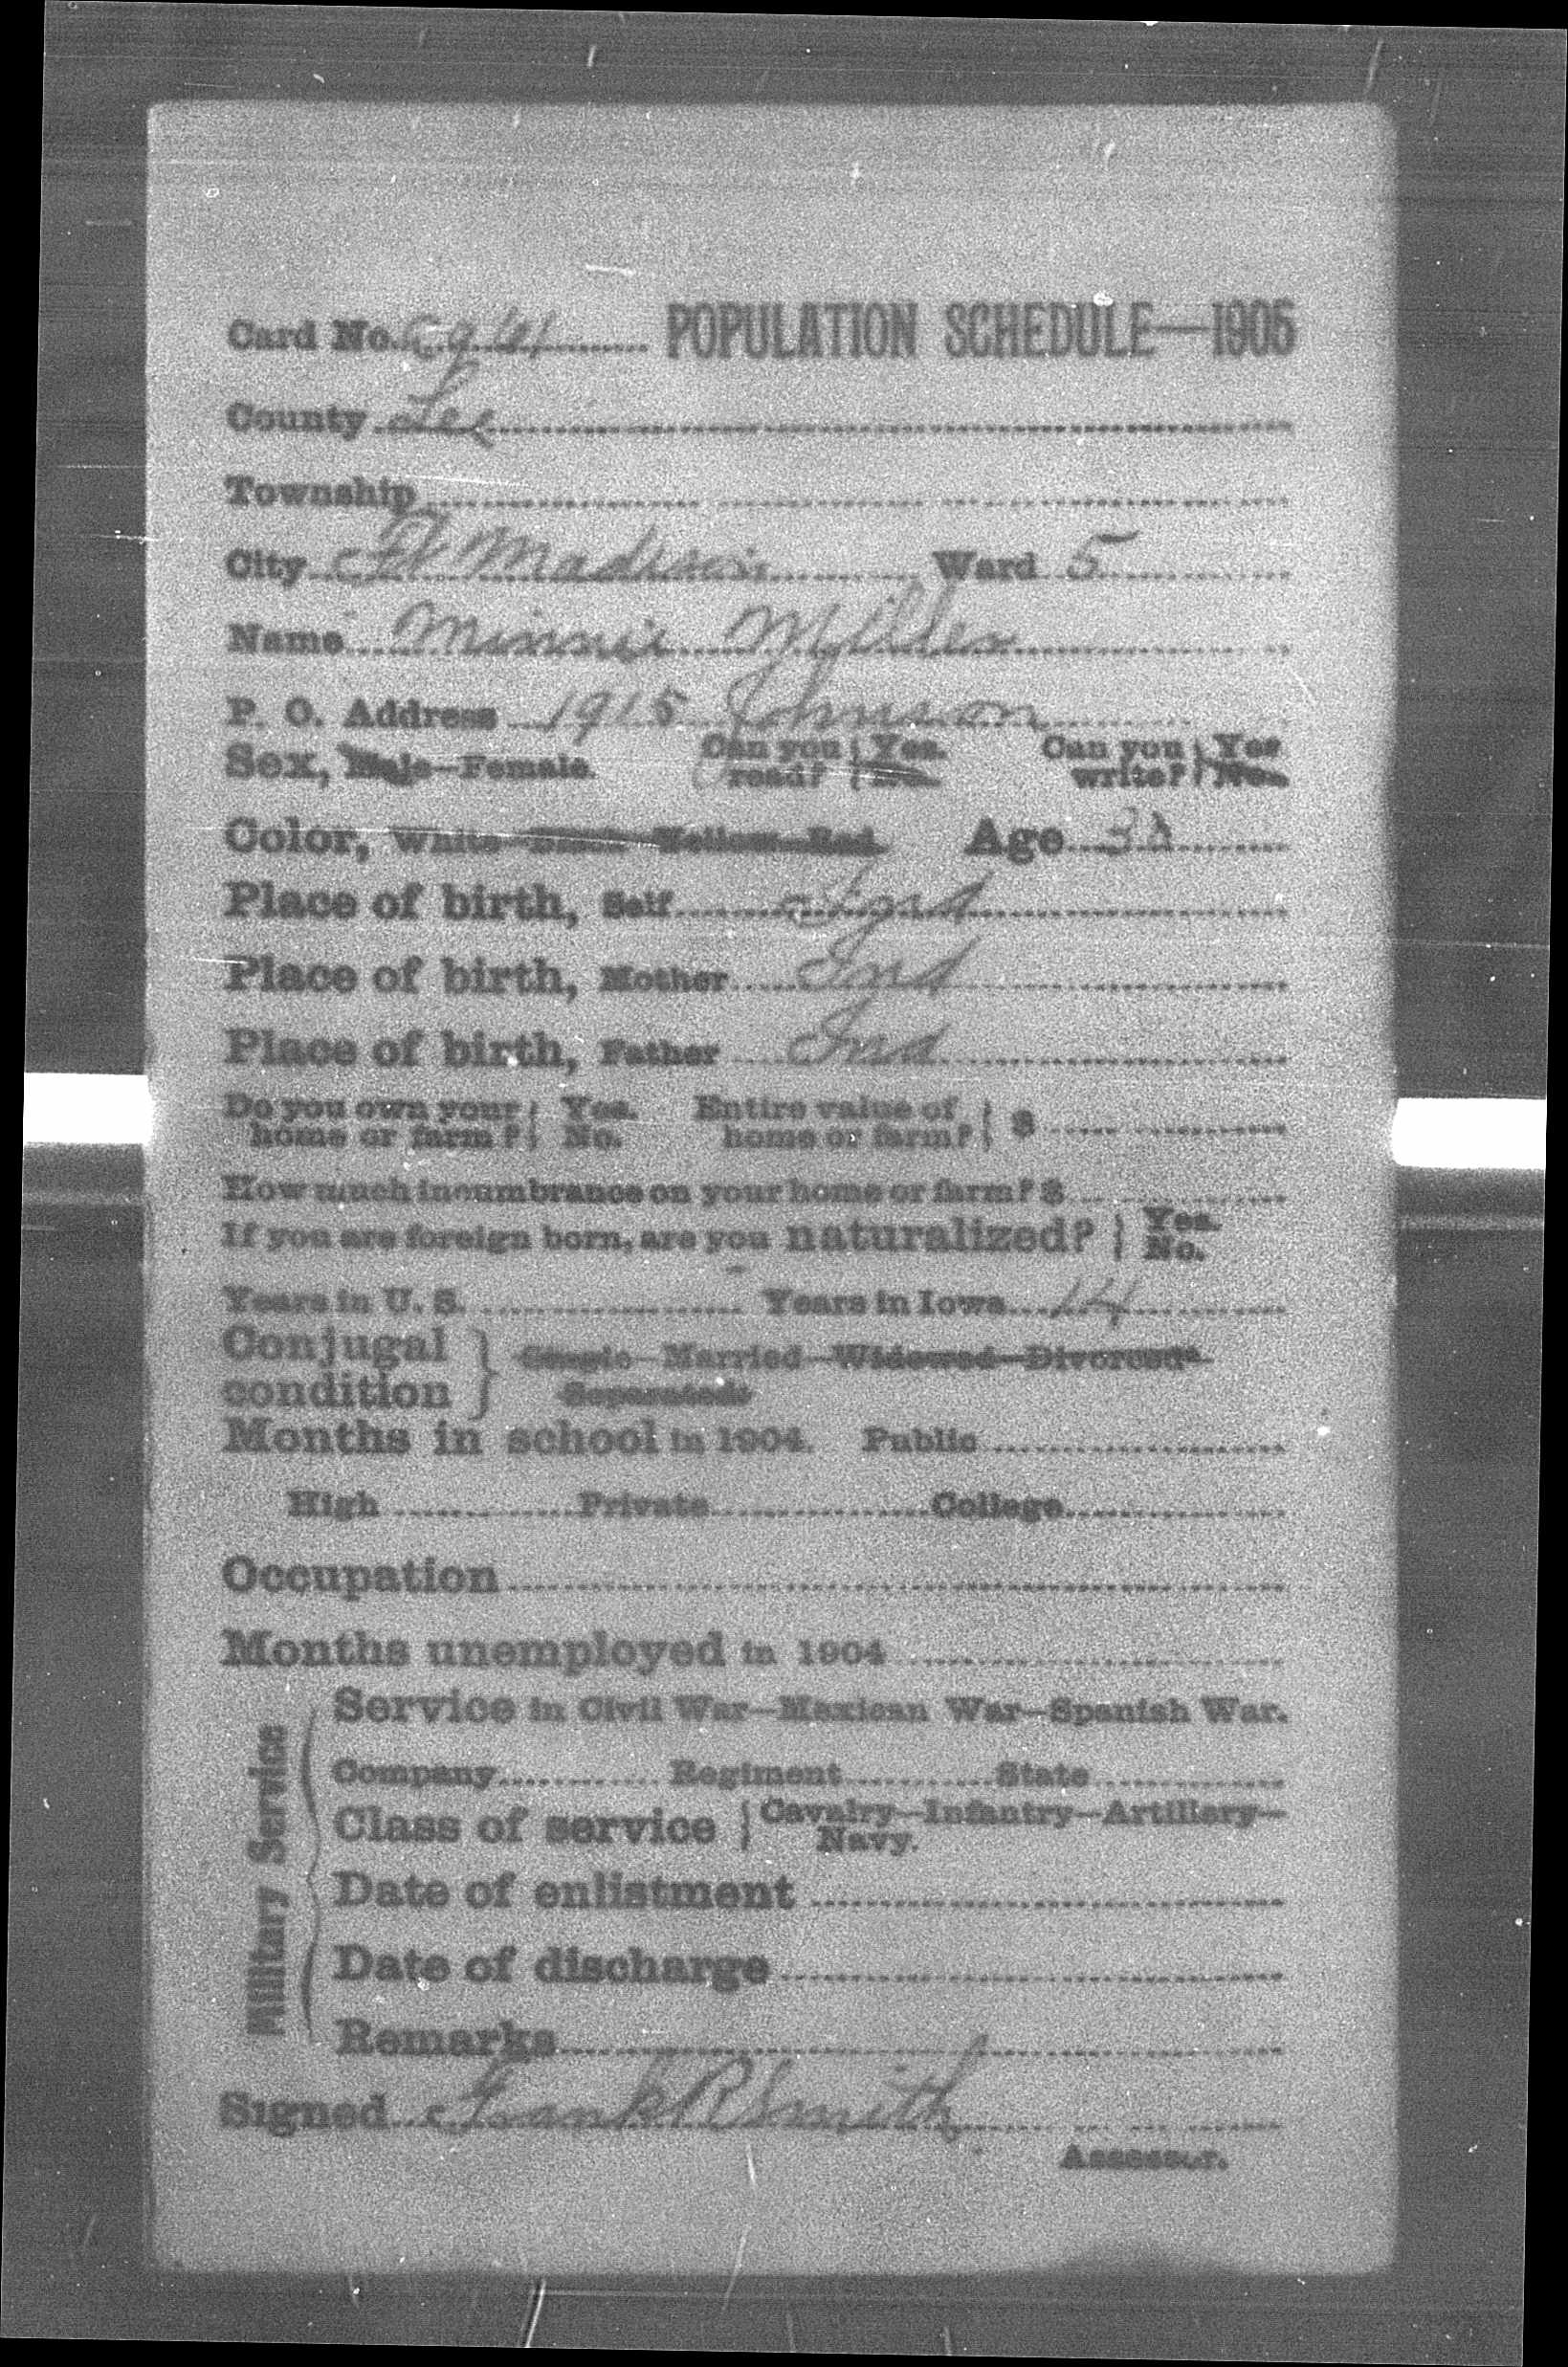 Card No. POPULATION SCHEDULE—1905
County Lee
Township
City Ft Madison Ward 5
Name Minnie Miller
P. O. Address 1915 Johnson
Sex, Male—Female. Can you read? { Yes. No. Can you write? } Yes No.
Color, White—Black—Yellow—Red. Age
Place of birth, Self Ind
Place of birth, Mother Ind
Place of birth, Father Ind
Do you own your home or farm? } Yes. No. Entire value of home or farm? } $
How much incumbrance on your home or farm? $
If you are foreign born, are you naturalized? } Yes. No.
Years in U. S. Years in Iowa 14
Conjugal condition } Single—Married—Widowed—Divorced—
Separated.
Months in school in 1904. Public
High Private College
Occupation
Months unemployed in 1904
Military Service
Service in Civil War—Mexican War—Spanish War.
Company Regiment State
Class of service } Cavalry—Infantry—Artillery—
Navy.
Date of enlistment
Date of discharge
Remarks
Signed Frank R Smith
Assessor.